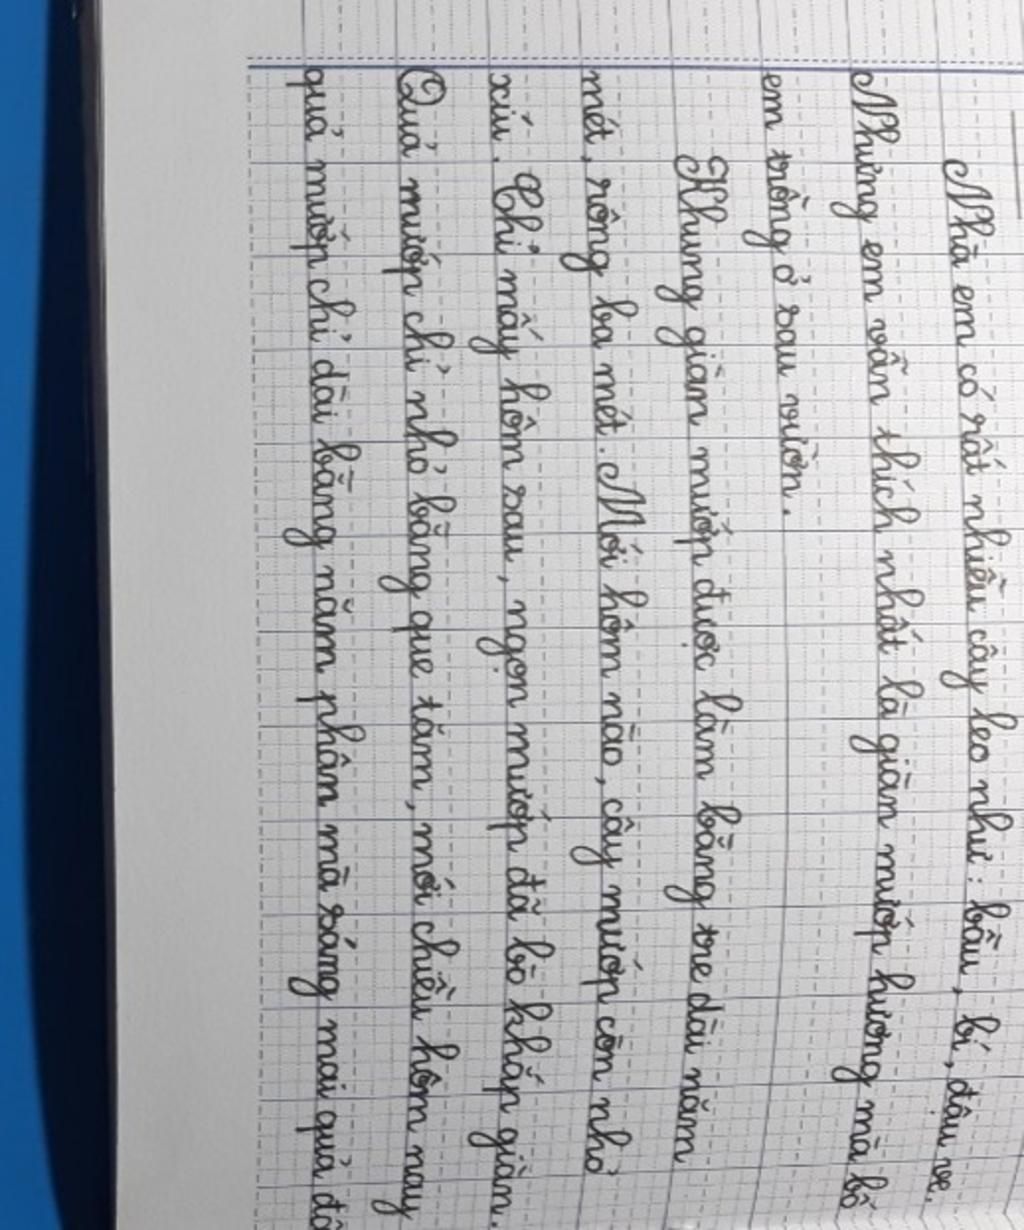 Nhà em có rất nhiều cây leo như: bầu, bí, đậu ve.
Nhưng em vẫn thích nhất là giàn mướp hương mà bố
em trồng ở sau vườn.
Khung giàn mướp được làm bằng tre dài năm
mét, rộng ba mét. Mới hôm nào, cây mướp còn nhỏ
xíu. Chỉ mấy hôm sau, ngọn mướp đã bò khắp giàn.
Quả mướp chỉ nhỏ bằng que tăm, mới chiều hôm nay
quả mướp chỉ dài bằng năm phân mà sáng mai quả đã